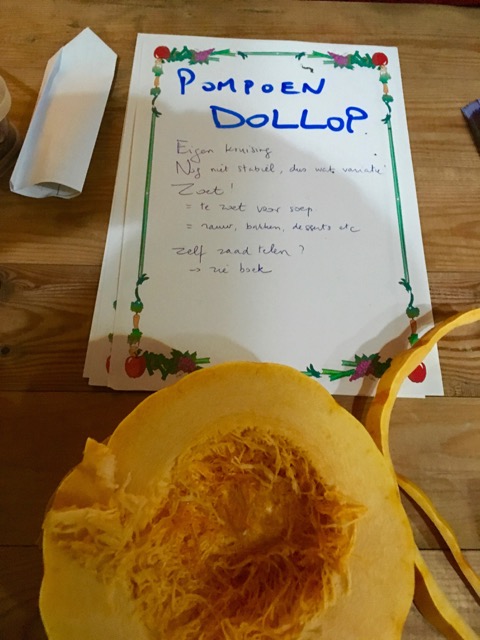 POMPOEN
DOLLOP
Eigen kruising
Nog niet stabiel, dus wat variatie
Zoet!
= te zoet voor soep
= rauw, bakken, desserts etc
Zelf zaad telen?
→ zie boek